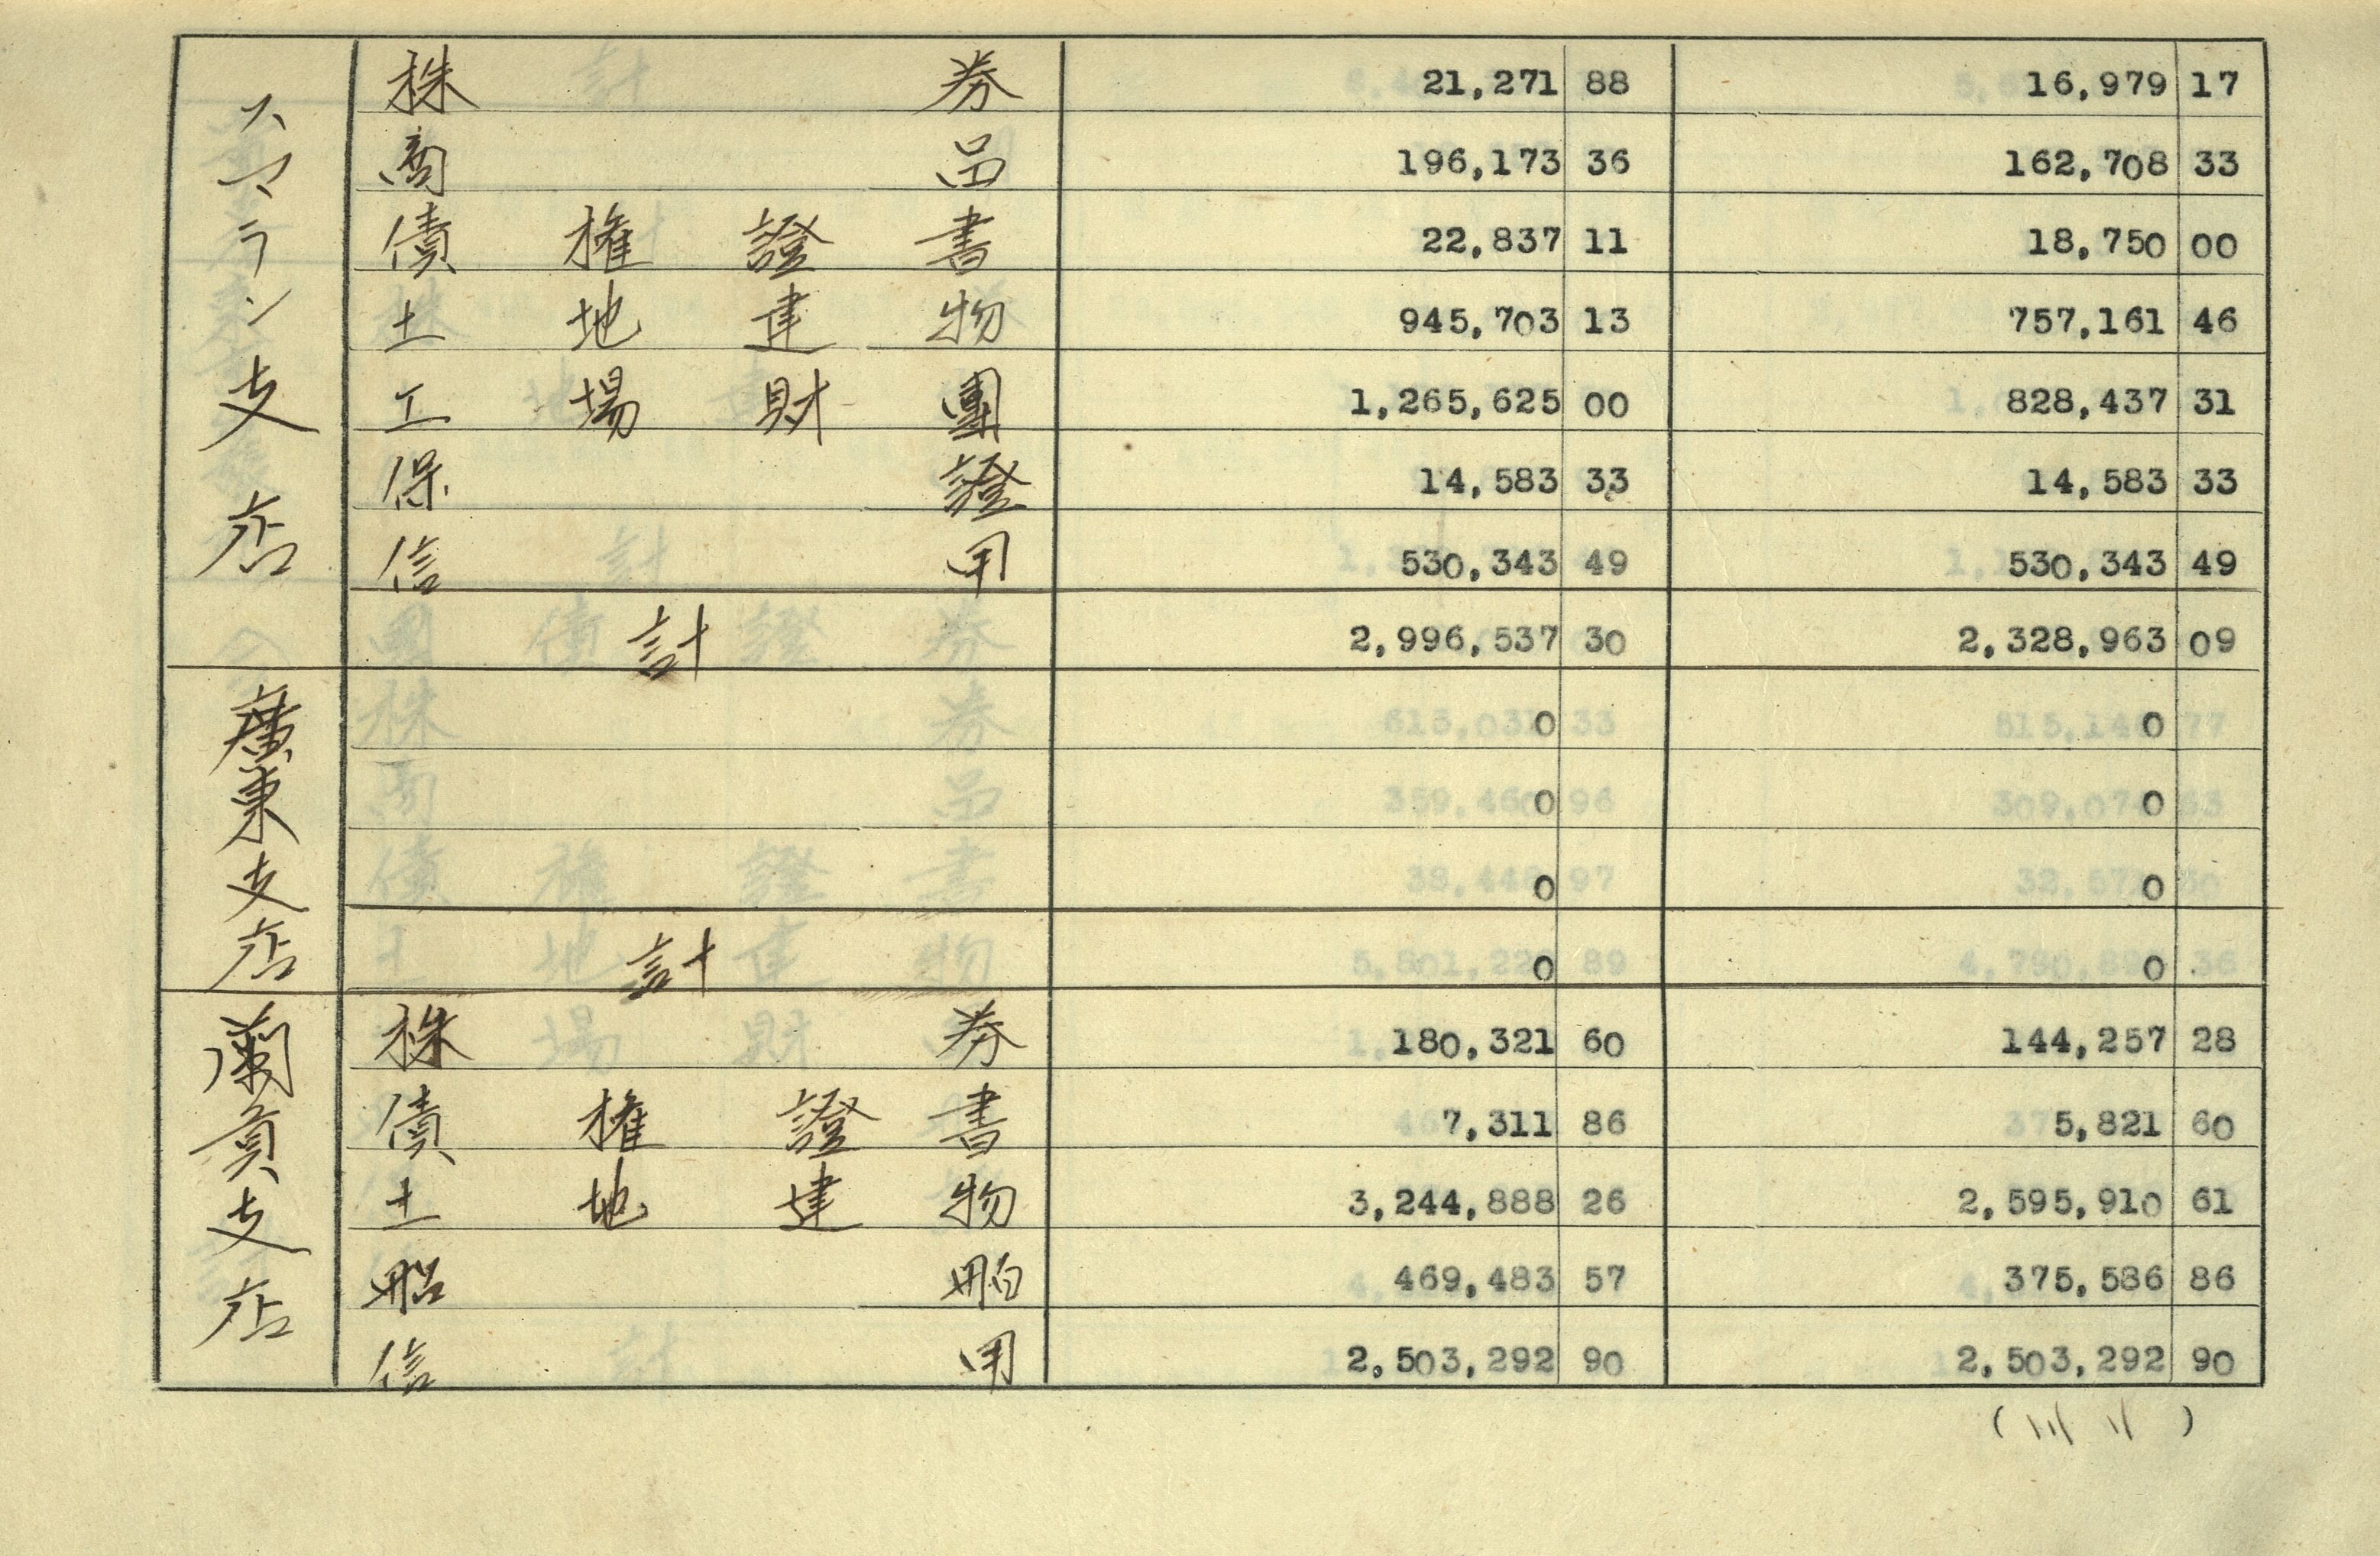 スマラン支店
株券 21,271 88 16,979 17
商品 196,173 36 162,708 33
債権證書 22,837 11 18,750 00
土地建物 945,703 13 757,161 46
工場財團 1,265,625 00 828,437 31
保證 14,583 33 14,583 33
信用 530,343 49 530,343 49
計 2,996,537 30 2,328,963 09
廣東支店
0 0
0 0
0 0
計 0 0
蘭貢支店
株券 180,321 60 144,257 28
債権證書 7,311 86 5,821 60
土地建物 3,244,888 26 2,595,910 61
船舶 469,483 57 375,586 86
信用 2,503,292 90 2,503,292 90